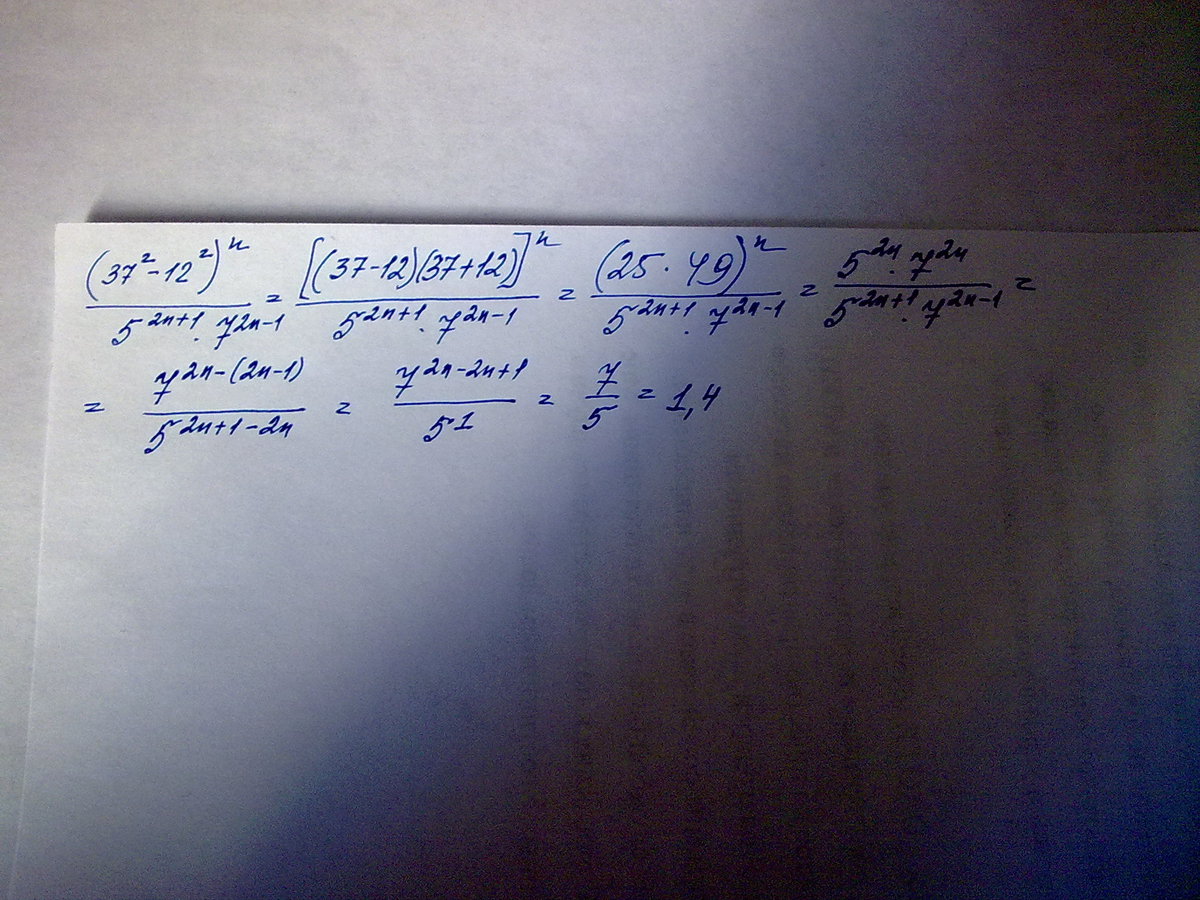 (37²-12²)ⁿ / 5²ⁿ⁺¹·7²ⁿ⁻¹ = [(37-12)(37+12)]ⁿ / 5²ⁿ⁺¹·7²ⁿ⁻¹ = (25·49)ⁿ / 5²ⁿ⁺¹·7²ⁿ⁻¹ = 5²ⁿ·7²ⁿ / 5²ⁿ⁺¹·7²ⁿ⁻¹ =
= 7²ⁿ⁻⁽²ⁿ⁻¹⁾ / 5²ⁿ⁺¹⁻²ⁿ = 7²ⁿ⁻²ⁿ⁺¹ / 5¹ = 7/5 = 1,4